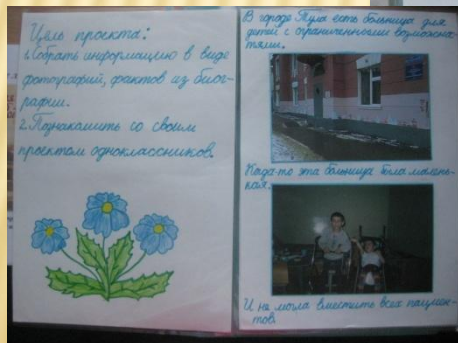 Цель проекта:
1. Собрать информацию в виде
фотографий, фактов из биог-
рафии.
2. Познакомить со своим
проектом одноклассников.
В городе Тула есть больница для
детей с ограниченными возможнос-
тями.
Когда-то эта больница была малень-
кая.
И не могла вместить всех пациен-
тов.